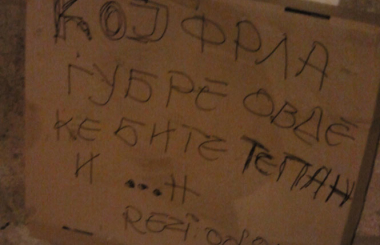 КОЈ ФРЛА
ГУБРЕ ОВДЕ
КЕ БИТЕ ТЕПАН
И ...Н